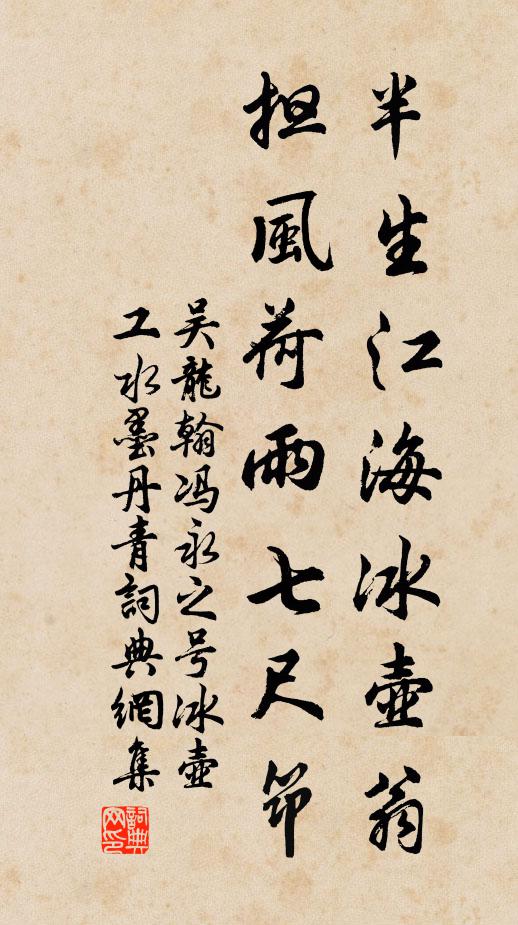 半生江海冰壺翁
担風荷雨七尺笻
吴龍翰冯永之号冰壺
工水墨丹青詞典網集
詞典网印